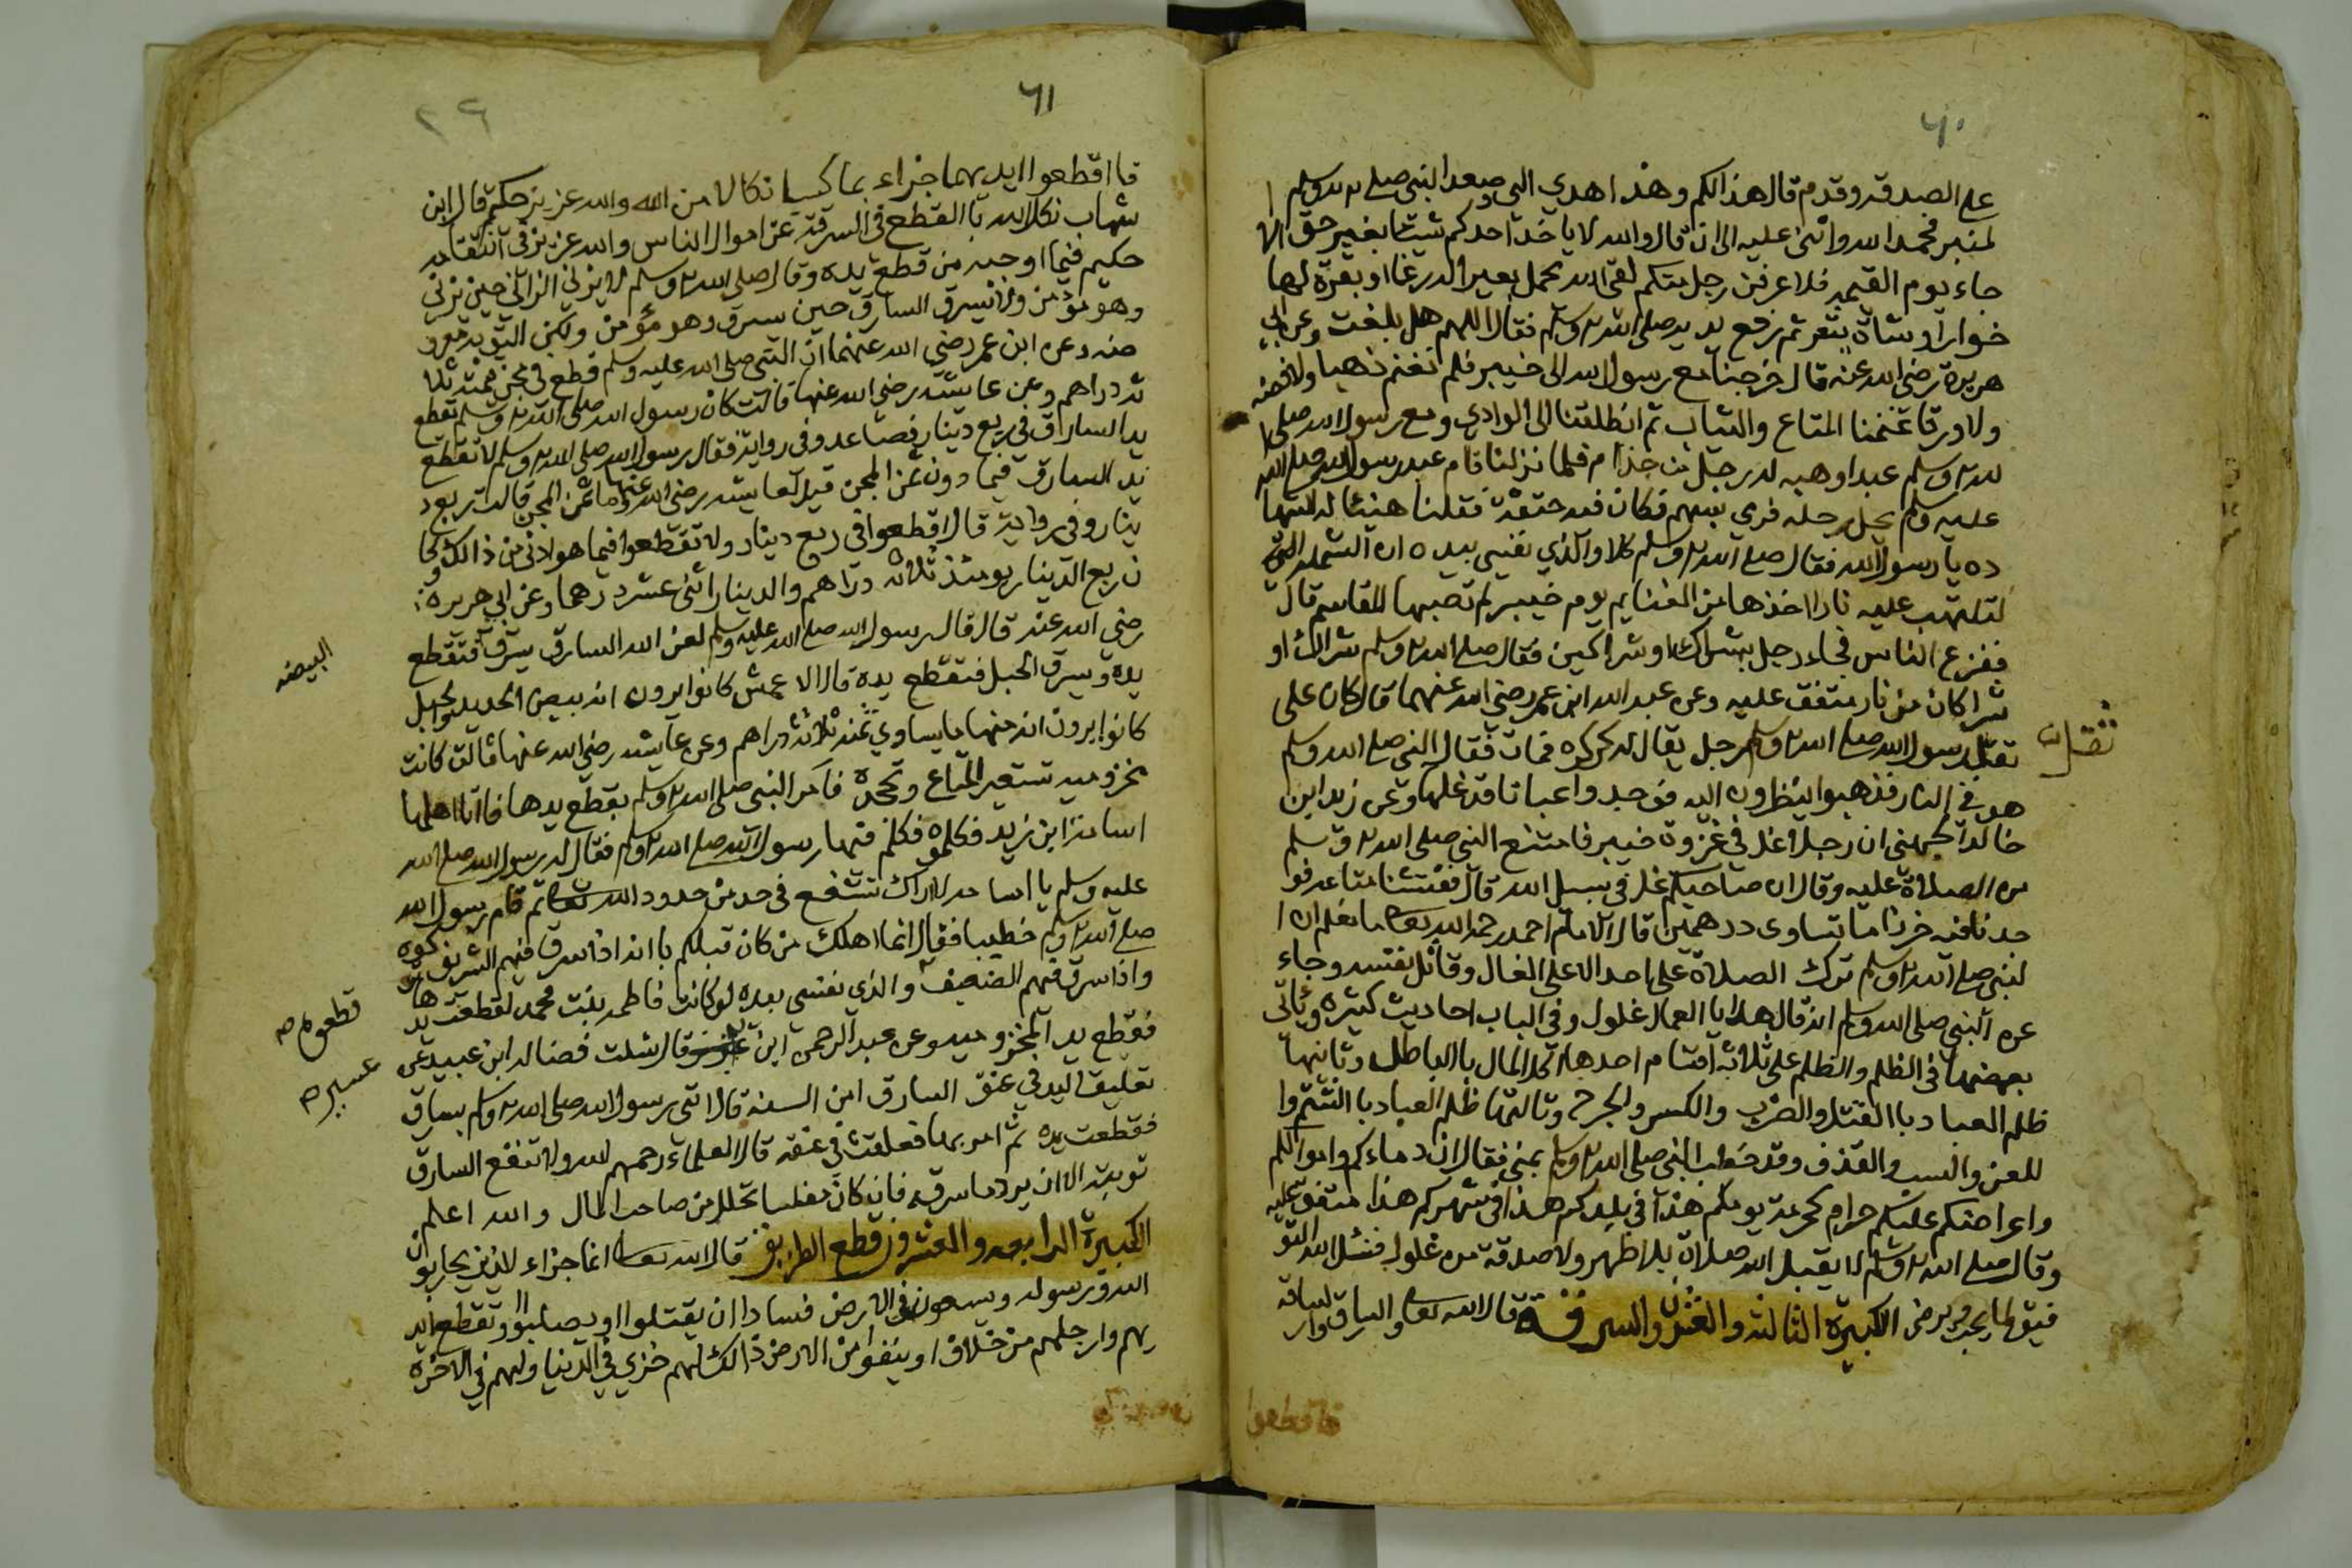 ٦٠
على الصدقة وقدم قال هذا لكم وهذا اهدي الي وصعد النبي صلى الله عليه وسلم ا
لمنبر فحمد الله واثنى عليه الى ان قال والله لا ياخذ احدكم شيئا بغير حق الا
جاء يوم القيمة فلا اعرفن رجل منكم لقى الله يحمل بعيرا له رغا او بقرة لها
خوار او شاة تيعر ثم رفع يديه صلى الله عليه وسلم فقال اللهم هل بلغت وعن ابي
هريرة رضي الله عنه قال خرجنا مع رسول الله الى خيبر فلم نغنم ذهبا ولا فضه
ولا ورقا غنمنا المتاع والثياب ثم انطلقنا الى الوادي ومع رسول الله صلى ا
لله عليه وسلم عبدا وهبه له رجل من جذام فلما نزلنا قام عبد رسول الله صلى الله
عليه وسلم يحل رحله فرمي بسهم فكان فيه حتفه فقلنا هنيئا له الشها
ده يا رسول الله فقال صلى الله عليه وسلم كلا والذي نفسي بيده ان الشملة التي
لتلتهب عليه نارا اخذها من الغنايم يوم خيبر لم تصبها المقاسم قال
ففزع الناس فجاء رجل بشراك او شراكين فقال صلى الله عليه وسلم شراك او
شراكان من نار متفق عليه وعن عبد الله ابن عمر رضي الله عنهما قال كان على
ثقل رسول الله صلى الله عليه وسلم رجل يقال له كركره فمات فقال النبي صلى الله وسلم
هو في النار فذهبوا ينظرون اليه فوجدوا عباتا قد غلها وعن زيد ابن
خالد الجهني ان رجلا غل في غزوة خيبر فامتنع النبي صلى الله عليه وسلم
من الصلاة عليه وقال ان صاحبكم غل في سبيل الله قال ففتشنا متاعه فو
جدنا فيه خرزا ما تساوى درهمين قال الامام احمد رحمه الله تعالى ما نعلم ان ا
لنبي صلى الله عليه وسلم ترك الصلاة على احد الا على الغال وقاتل نفسه وجاء
عن النبي صلى الله وسلم انه قال هدايا العمال غلول وفي الباب احاديث كثيره وياتي
بعضها في الظلم والظلم على ثلاثة اقسام احدها اكل المال بالباطل وثانيها
ظلم العباد باالقتل والضرب والكسر والجرح وثالثها ظلم العباد باالشتم وا
للعن والسب والقذف وقد خطب النبي صلى الله عليه وسلم بمنى فقال ان دماءكم واموالكم
واعراضكم عليكم حرام كحرمة يومكم هذا في بلدكم هذا في شهركم هذا متفق عليه
وقال صلى الله عليه وسلم لا يقبل الله صلاة بلا طهر ولا صدقة من غلول فنسئل الله التو
فيق لما يحب ويرضى الكبيرة الثالثه والعشرون السرقة قال الله تعالى والسارق والسارقة
فاقطعوا
٦١
٢٩
فااقطعوا ايديهما جزاء بما كسبا نكالا من الله والله عزيز حكيم قال ابن
شهاب نكل الله باالقطع في السرقة عن اموال الناس والله عزيز في انتقامه
حكيم فيما اوجبه من قطع يده وقال صلى الله عليه وسلم لا يزني الزاني حين يزني
وهو مؤمن ولا يسرق السارق حين يسرق وهو مؤمن ولكن التوبة معرو
ضه وعن ابن عمر رضي الله عنهما ان النبي صلى الله عليه وسلم قطع في مجن قيمته ثلا
ثه دراهم وعن عايشه رضي الله عنها قالت كان رسول الله صلى الله عليه وسلم يقطع
يد السارق في ربع دينار فصاعد وفي رواية فقال رسول الله صلى الله عليه وسلم لا تقطع
يد السارق فيما دون ثمن المجن قيل لعايشه رضي الله عنها وما ثمن المجن قالت ربع د
ينار وفي رواية قال اقطعوا في ربع دينار ولا تقطعوا فيما هو ادنى من ذالك وكا
ن ربع الدينار يومئذ ثلاثة دراهم والدينار اثنى عشر درهما وعن ابي هريره
رضي الله عنه قال قال رسول الله صلى الله عليه وسلم لعن الله السارق يسرق فتقطع
البيضه
يده ويسرق الحبل فتقطع يده قال الاعمش كانوا يرون انه بيض الحديد والحبل
كانوا يرون انه منها ما يساوي ثمنه ثلاثة دراهم وعن عايشه رضي الله عنها قالت كانت
مخزوميه تستعير المتاع وتجحده فامر النبي صلى الله عليه وسلم بقطع يدها فاتا اهلها
اسامة ابن زيد فكلموه فكلم فيها رسول الله صلى الله عليه وسلم فقال له رسول الله صلى الله
عليه وسلم يا اسامه لا اراك تشفع في حد من حدود الله تعالى ثم قام رسول الله
صلى الله عليه وسلم خطيبا فقال انما اهلك من كان قبلكم باانه اذا سرق فيهم الشريف تركوه
واذا سرق فيهم الضعيف والذي نفسي بيده لو كانت فاطمه بنت محمد لقطعت يدها
قطعوه صح
فقطع يد المخزوميه وعن عبد الرحمن ابن قال سئلت فضاله ابن عبيد عن
تعليق اليد في عنق السارق امن السنه قال اتي رسول الله صلى الله عليه وسلم بسارق
فقطعت يده ثم امر بها فعلقت في عنقه قال العلماء رحمهم الله ولا تنفع السارق
توبته الا ان يرد ما سرقه فان كان مفلسا تحلل من صاحب المال والله اعلم
الكبيرة الرابعه والعشرون قطع الطريق قال الله تعالى انما جزاء الذين يحاربون
الله ورسوله ويسعون في الارض فسادا ان يقتلوا او يصلبوا او تقطع ايد
يهم وارجلهم من خلاف او ينفوا من الارض ذالك لهم خزي في الدنيا ولهم في الاخرة